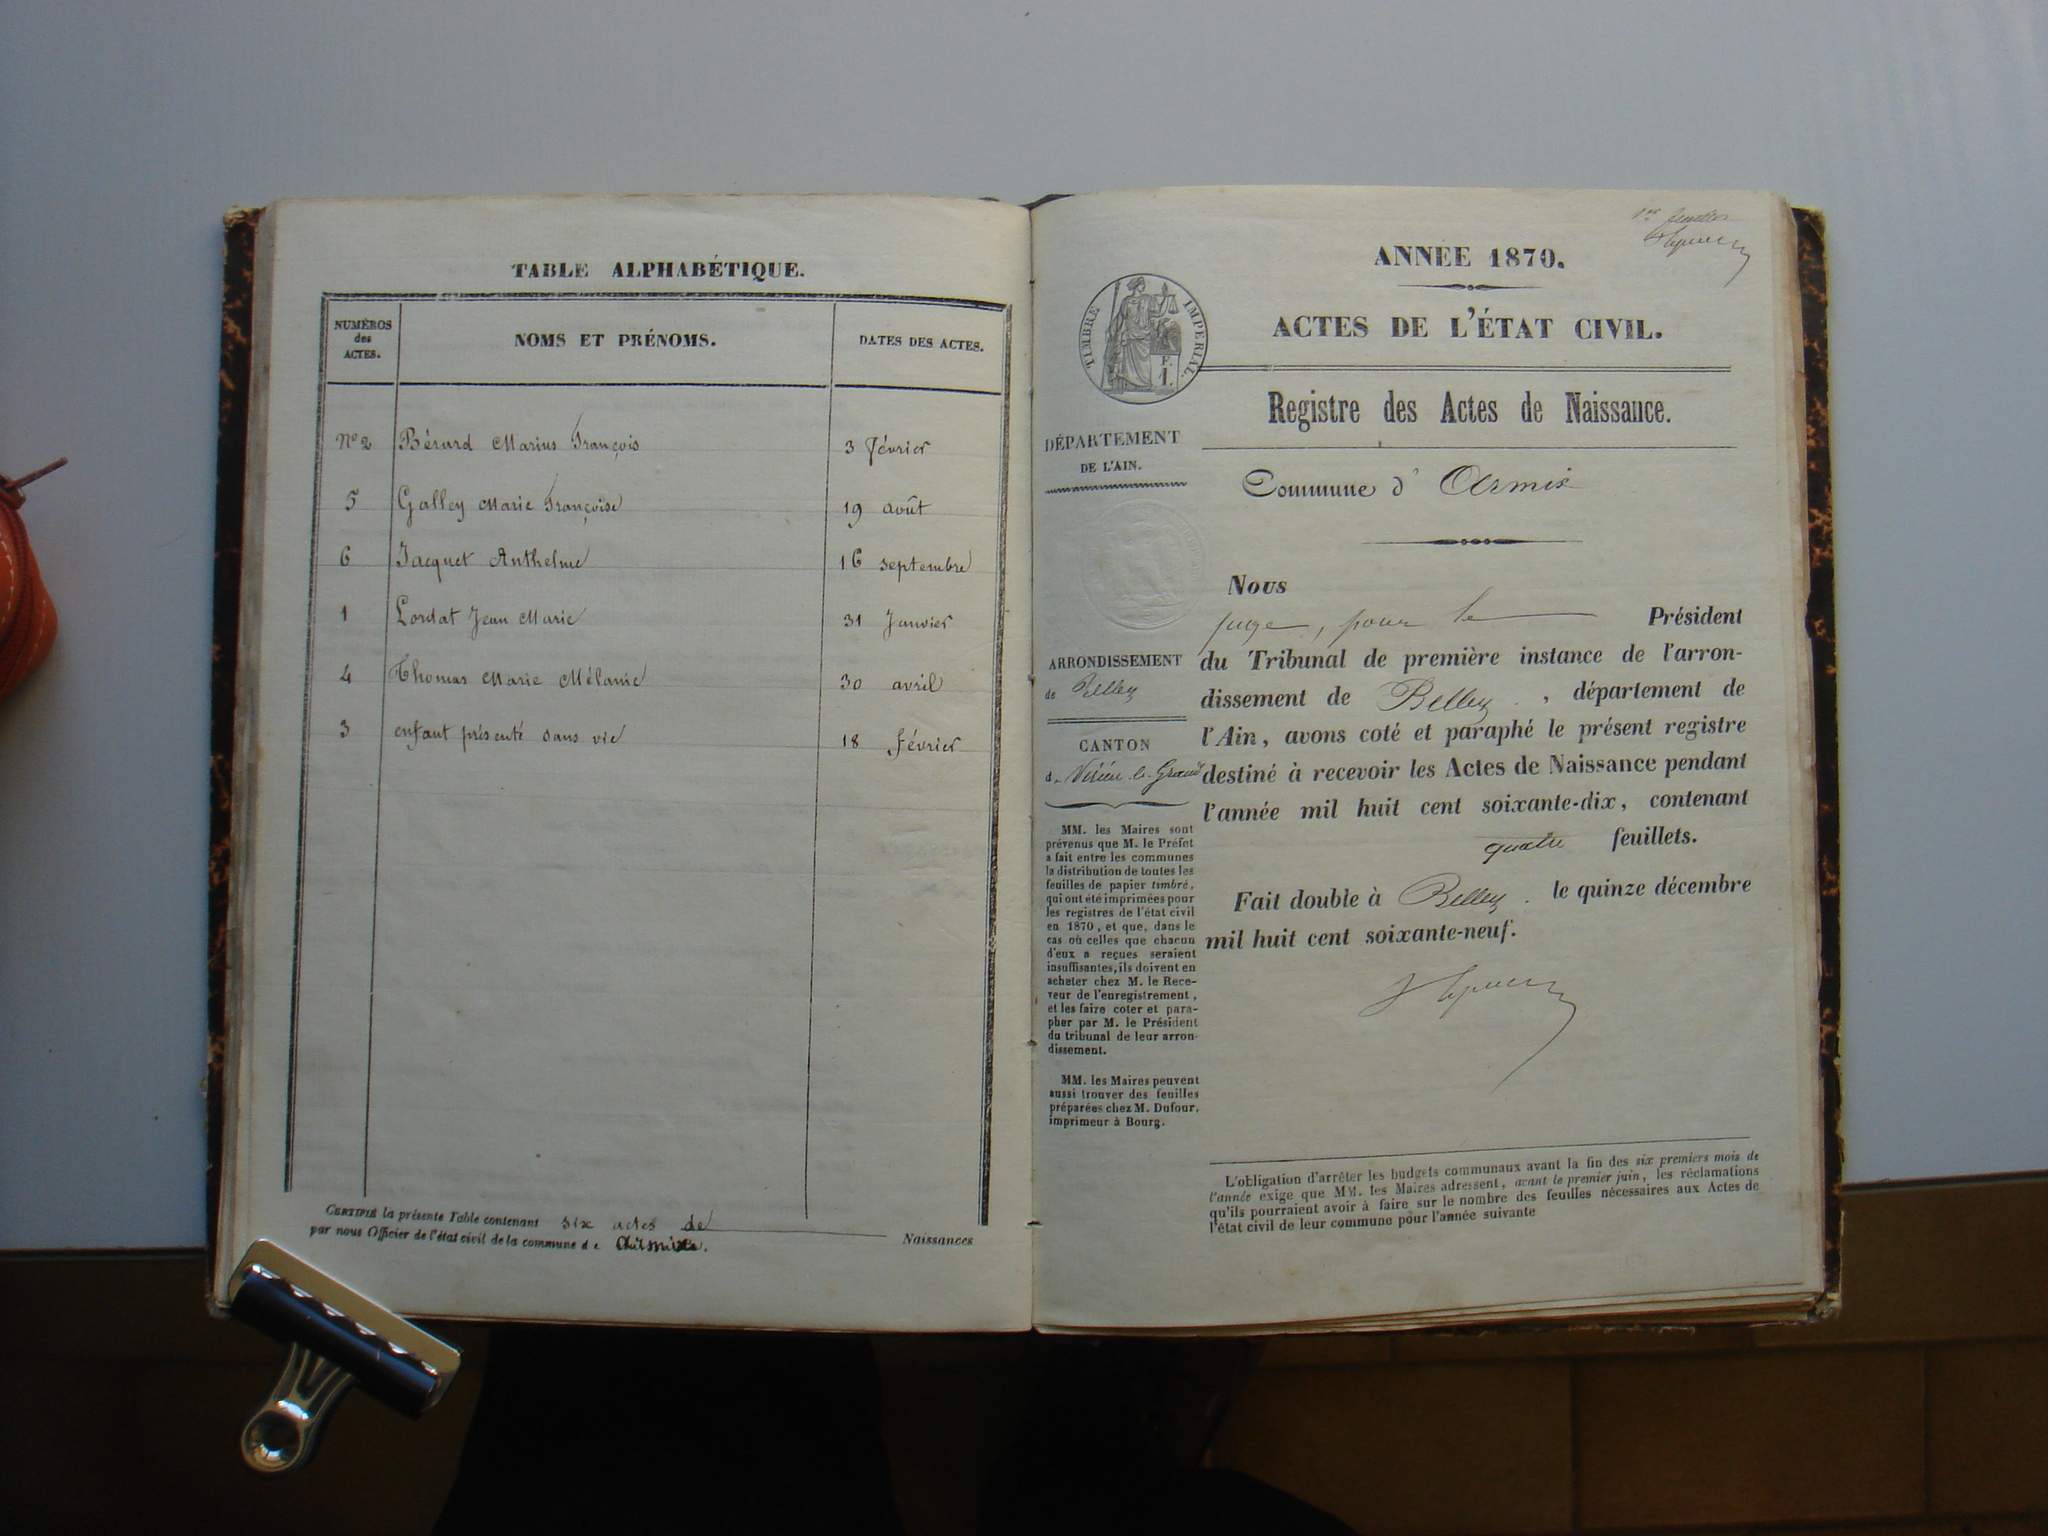 TABLE ALPHABÉTIQUE.
NUMÉROS des ACTES. NOMS ET PRÉNOMS. DATES DES ACTES.
N° 2 Bérard Marius François 3 février
5 Galley Marie Françoise 19 août
6 Jacquet Anthelme 16 septembre
1 Lordat Jean Marie 31 Janvier
4 Thomas Marie Mélanie 30 avril
3 enfant présenté sans vie 18 février
CERTIFIÉ la présente Table contenant six actes de Naissances
par nous Officier de l'état civil de la commune de
1er feuillet
ANNÉE 1870.
TIMBRE IMPÉRIAL.
ACTES DE L'ÉTAT CIVIL.
Registre des Actes de Naissance.
DÉPARTEMENT
DE L'AIN.
Commune d'Armix
ARRONDISSEMENT
de Belley
CANTON
de Virieu-le-Grand
MM. les Maires sont
prévenus que M. le Préfet
a fait entre les communes
la distribution de toutes les
feuilles de papier timbré,
qui ont été imprimées pour
les registres de l'état civil
en 1870, et que, dans le
cas où celles que chacun
d'eux a reçues seraient
insuffisantes, ils doivent en
acheter chez M. le Rece-
veur de l'enregistrement,
et les faire coter et para-
pher par M. le Président
du tribunal de leur arron-
dissement.
MM. les Maires peuvent
aussi trouver des feuilles
préparées chez M. Dufour,
imprimeur à Bourg.
Nous
juge, pour le Président
du Tribunal de première instance de l'arron-
dissement de Belley, département de
l'Ain, avons coté et paraphé le présent registre
destiné à recevoir les Actes de Naissance pendant
l'année mil huit cent soixante-dix, contenant
quatre feuillets.
Fait double à Belley. le quinze décembre
mil huit cent soixante-neuf.
L'obligation d'arrêter les budgets communaux avant la fin des six premiers mois de
l'année exige que MM. les Maires adressent, avant le premier juin, les réclamations
qu'ils pourraient avoir à faire sur le nombre des feuilles nécessaires aux Actes de
l'état civil de leur commune pour l'année suivante